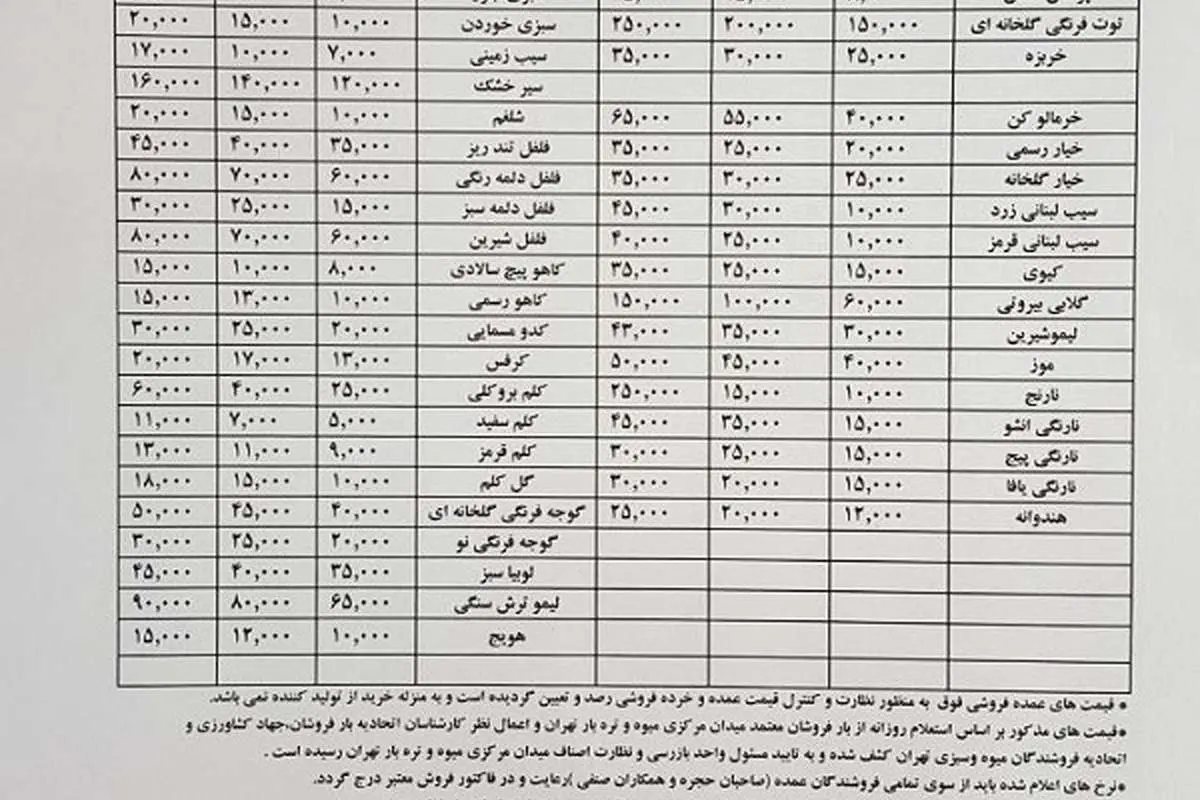 توت فرنگی گلخانه ای ۱۵۰,۰۰۰ ۲۰۰,۰۰۰ ۲۵۰,۰۰۰ سبزی خوردن ۱۰,۰۰۰ ۱۵,۰۰۰ ۲۰,۰۰۰
خربزه ۲۵,۰۰۰ ۳۰,۰۰۰ ۳۵,۰۰۰ سیب زمینی ۷,۰۰۰ ۱۰,۰۰۰ ۱۷,۰۰۰
سیر خشک ۱۲۰,۰۰۰ ۱۴۰,۰۰۰ ۱۶۰,۰۰۰
خرمالو کن ۴۰,۰۰۰ ۵۵,۰۰۰ ۶۵,۰۰۰ شلغم ۱۰,۰۰۰ ۱۵,۰۰۰ ۲۰,۰۰۰
خیار رسمی ۲۰,۰۰۰ ۲۵,۰۰۰ ۳۵,۰۰۰ فلفل تند ریز ۳۵,۰۰۰ ۴۰,۰۰۰ ۴۵,۰۰۰
خیار گلخانه ۲۵,۰۰۰ ۳۰,۰۰۰ ۳۵,۰۰۰ فلفل دلمه رنگی ۶۰,۰۰۰ ۷۰,۰۰۰ ۸۰,۰۰۰
سیب لبنانی زرد ۱۰,۰۰۰ ۳۰,۰۰۰ ۴۵,۰۰۰ فلفل دلمه سبز ۱۵,۰۰۰ ۲۵,۰۰۰ ۳۰,۰۰۰
سیب لبنانی قرمز ۱۰,۰۰۰ ۲۵,۰۰۰ ۴۰,۰۰۰ فلفل شیرین ۶۰,۰۰۰ ۷۰,۰۰۰ ۸۰,۰۰۰
کیوی ۱۵,۰۰۰ ۲۵,۰۰۰ ۳۵,۰۰۰ کاهو پیچ سالادی ۸,۰۰۰ ۱۰,۰۰۰ ۱۵,۰۰۰
گلابی بیروتی ۶۰,۰۰۰ ۱۰۰,۰۰۰ ۱۵۰,۰۰۰ کاهو رسمی ۱۰,۰۰۰ ۱۳,۰۰۰ ۱۵,۰۰۰
لیموشیرین ۳۰,۰۰۰ ۳۵,۰۰۰ ۴۳,۰۰۰ کدو مسمایی ۲۰,۰۰۰ ۲۵,۰۰۰ ۳۰,۰۰۰
موز ۴۰,۰۰۰ ۴۵,۰۰۰ ۵۰,۰۰۰ کرفس ۱۳,۰۰۰ ۱۷,۰۰۰ ۲۰,۰۰۰
نارنج ۱۰,۰۰۰ ۱۵,۰۰۰ ۲۵۰,۰۰۰ کلم بروکلی ۲۵,۰۰۰ ۴۰,۰۰۰ ۶۰,۰۰۰
نارنگی انشو ۱۵,۰۰۰ ۳۵,۰۰۰ ۴۵,۰۰۰ کلم سفید ۵,۰۰۰ ۷,۰۰۰ ۱۱,۰۰۰
نارنگی پیج ۱۵,۰۰۰ ۲۵,۰۰۰ ۳۰,۰۰۰ کلم قرمز ۹,۰۰۰ ۱۱,۰۰۰ ۱۳,۰۰۰
نارنگی یافا ۱۵,۰۰۰ ۲۰,۰۰۰ ۳۰,۰۰۰ گل کلم ۱۰,۰۰۰ ۱۵,۰۰۰ ۱۸,۰۰۰
هندوانه ۱۲,۰۰۰ ۲۰,۰۰۰ ۲۵,۰۰۰ گوجه فرنگی گلخانه ای ۴۰,۰۰۰ ۴۵,۰۰۰ ۵۰,۰۰۰
گوجه فرنگی نو ۲۰,۰۰۰ ۲۵,۰۰۰ ۳۰,۰۰۰
لوبیا سبز ۳۵,۰۰۰ ۴۰,۰۰۰ ۴۵,۰۰۰
لیمو ترش سنگی ۶۵,۰۰۰ ۸۰,۰۰۰ ۹۰,۰۰۰
هویج ۱۰,۰۰۰ ۱۲,۰۰۰ ۱۵,۰۰۰
* قیمت های عمده فروشی فوق به منظور نظارت و کنترل قیمت عمده و خرده فروشی رصد و تعیین گردیده است و به منزله خرید از تولید کننده نمی باشد.
*قیمت های مذکور بر اساس استعلام روزانه از بار فروشان معتمد میدان مرکزی میوه و تره بار تهران و اعمال نظر کارشناسان اتحادیه بار فروشان،جهاد کشاورزی و
اتحادیه فروشندگان میوه وسبزی تهران کشف شده و به تایید مسئول واحد بازرسی و نظارت اصناف میدان مرکزی میوه و تره بار تهران رسیده است .
*نرخ های اعلام شده باید از سوی تمامی فروشندگان عمده (صاحبان حجره و همکاران صنفی )رعایت و در فاکتور فروش معتبر درج گردد.